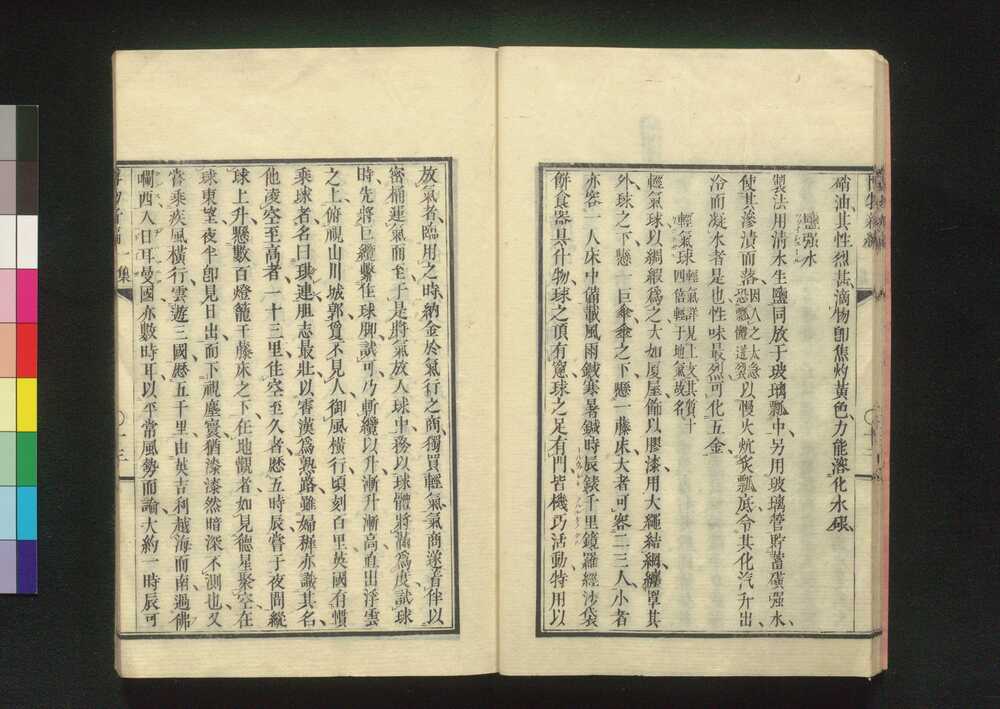 硝油其性烈甚滴物卽焦灼黃色力能溶化水銀
鹽强水
製法用清水生鹽同放于玻璃瓢中另用玻璃管貯蓄磺强水
使其滲漬而落恐瓢儺道裂因人之太急以慢火炕炙瓢底令其化汽升出
冶而凝水者是也性味最烈可化五金
輕氣球輕氣詳見上文其質十四倍輕于地氣故名
輕氣球以綢緞爲之大如厦屋飾以膠漆用大繩結網纏罩其
外球之下懸一巨傘傘之下懸一藤床大者可容二三人小者
亦容一人床中備載風雨鍼寒暑鍼時辰錶千里鏡羅經沙袋
餅食器具什物球之頂有窻球之足有門皆機巧活動特用以
放氣者臨用之時納金於氣行之商獨買輕氣氣商遂着伴以
密桶運氣而至于是將氣放入球中務以球體將滿爲度試球
時先將巨纜繫住球脚試可乃斬纜以升漸升漸高直出浮雲
之上俯視山川城郭質不見人御風橫行頃刻百里英國有慣
乘球者名曰 連胆志最壯以霄漢爲熟路雖婦稚亦識其名
他凌空至高者一十三里住空至久者歷五時辰嘗于夜間縱
球上升懸數百燈籠于藤床之下在地觀者如見德星聚空在
球東望夜半卽見日出而下視塵寰猶漆漆然暗深不測也又
嘗乘疾風橫行雲遊三國歷五千里由英吉利越海而南過佛
囒西入日耳曼國亦數時耳以平常風勢而論大約一時辰可
集
十三